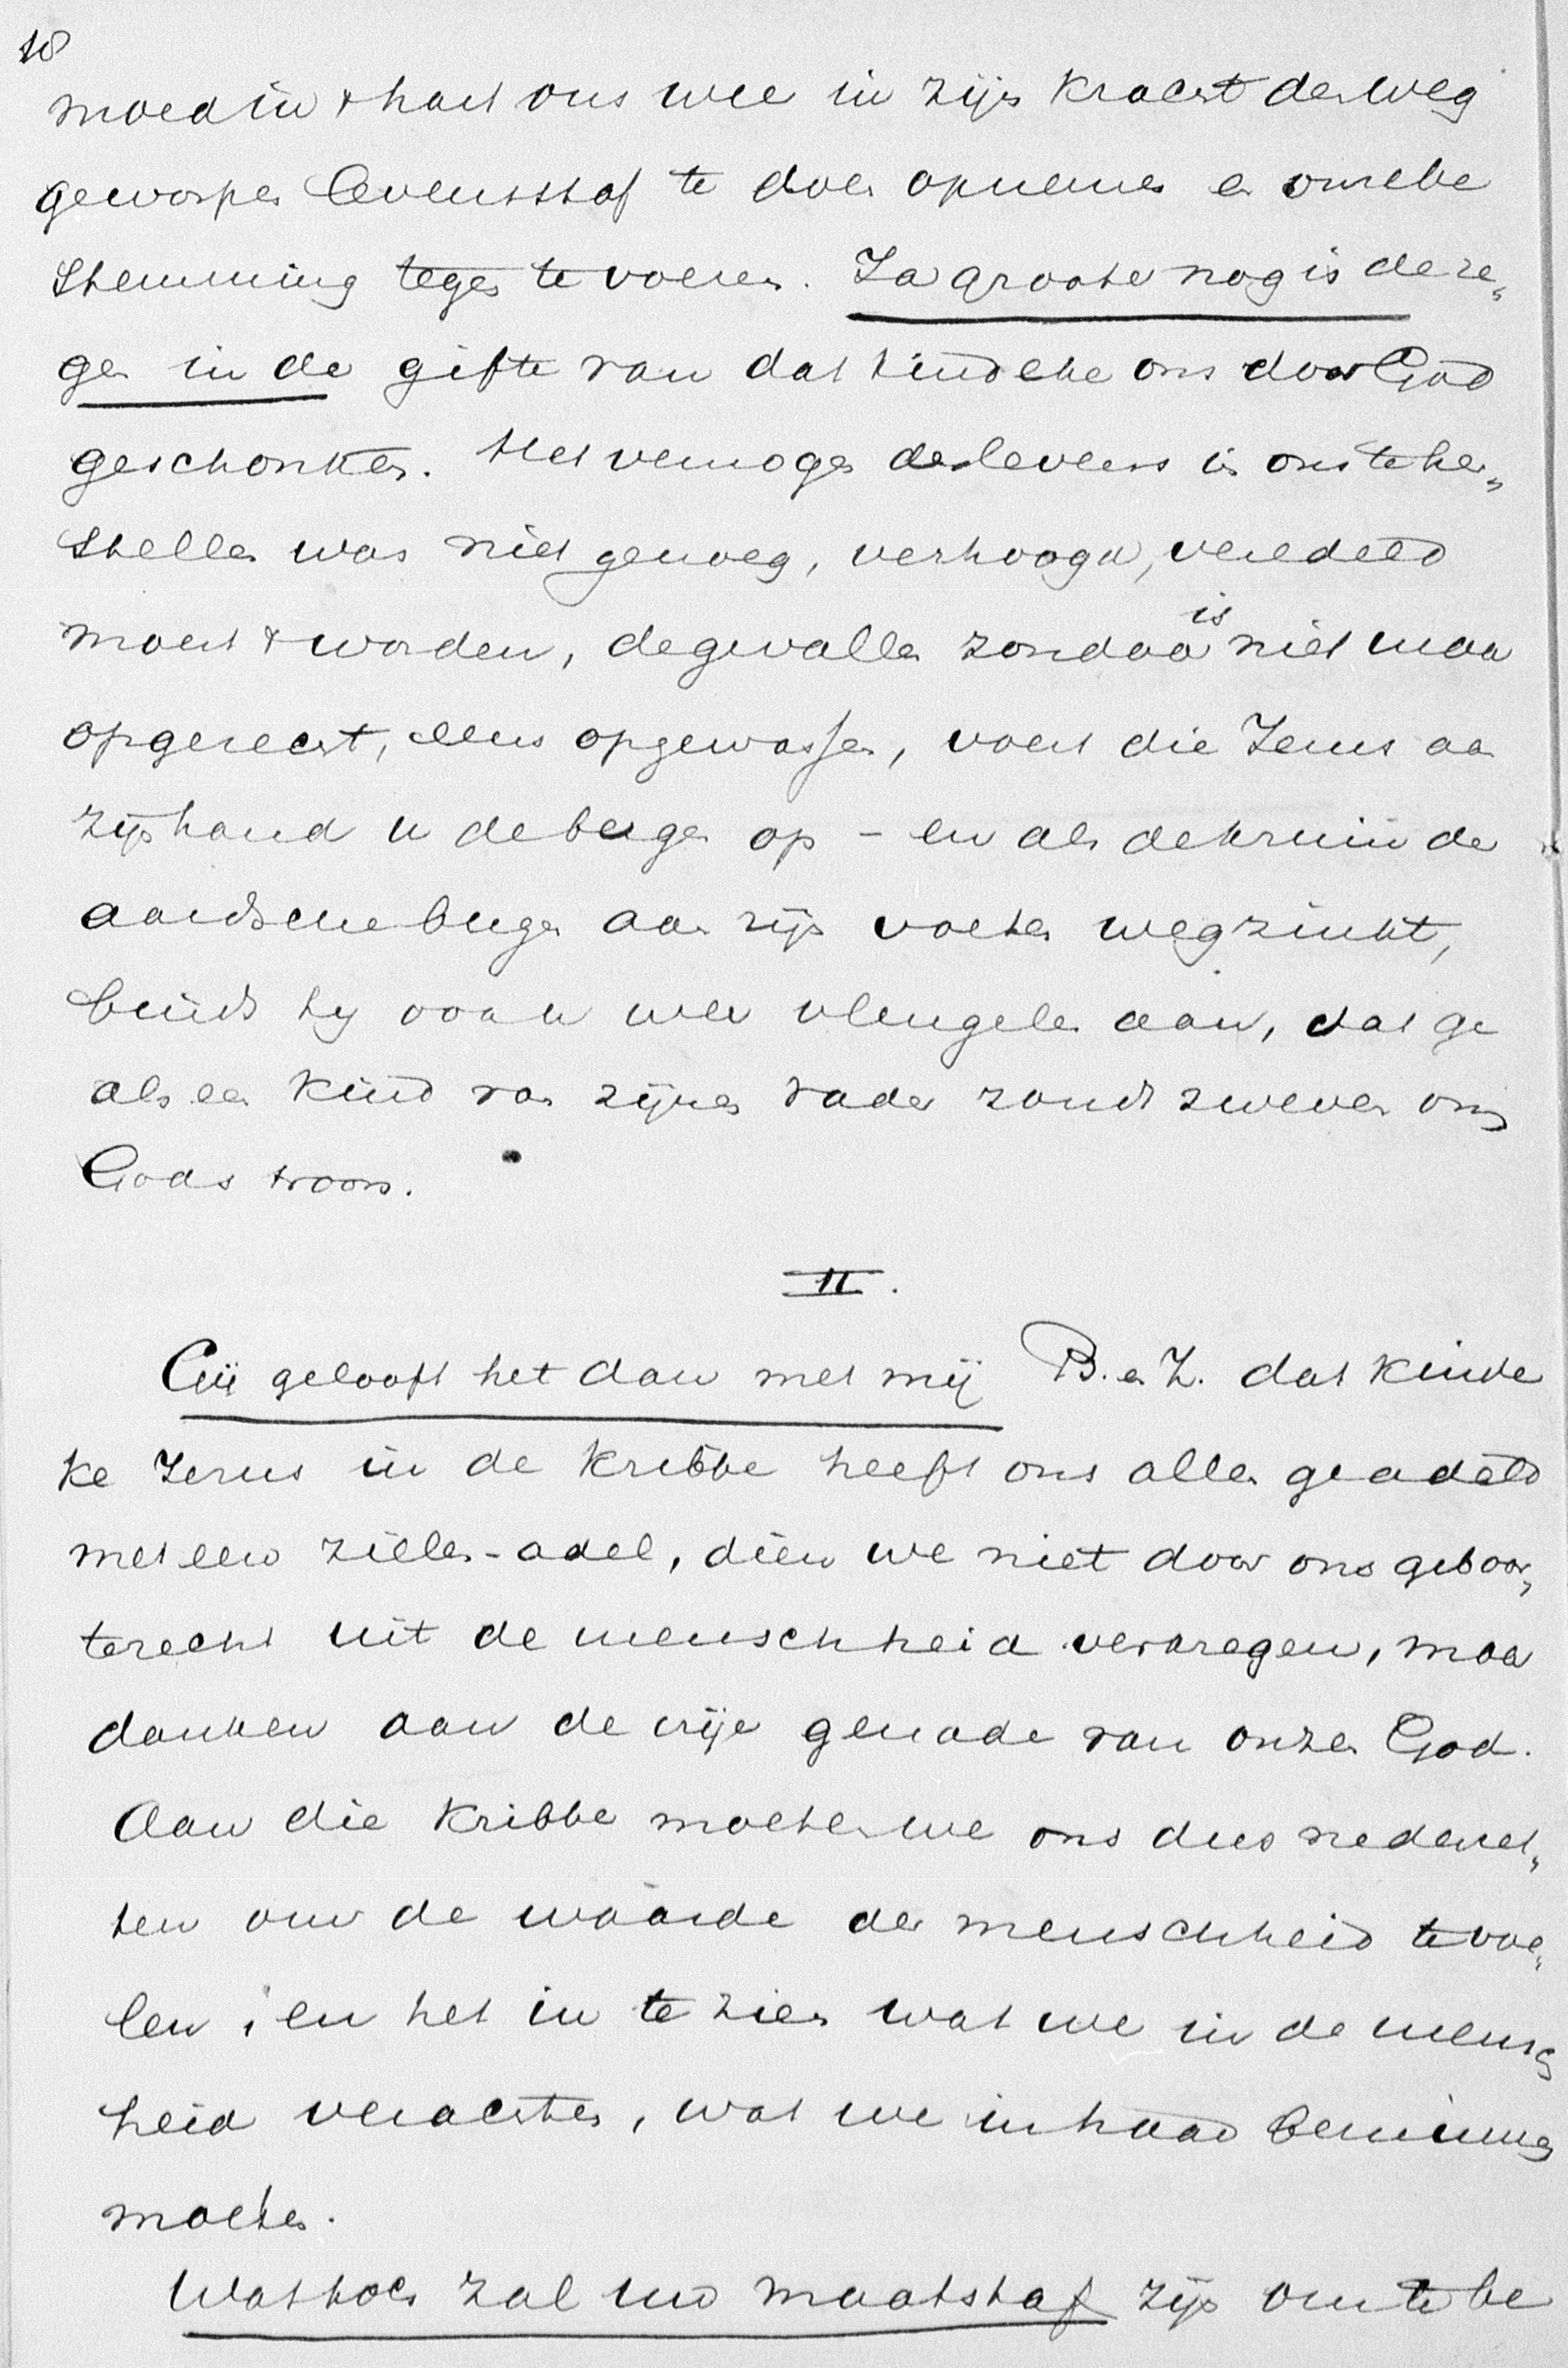 18
moed in & hart ons weer in zijn kracht de weg
geworpen levensstaf te doen opnemen en onze be
stemming tegen te voeren. Ja grooter nog is de ze„
gen in de gifte van dat kindeke ons door God
geschonken. Het vermogen des levens in ons te her„
stellen was niet genoeg, verhoogd, veredeld
moest & worden, de gevallen zondaar is niet maar
opgerecht, eens opgewassen, voert die Jezus aan
zijn hand u de bergen op – en als de kruin der
aardsche bergen aan zijn voeten wegzinkt,
bindt hij ook u weer vleugelen aan, dat ge
als een kind van zijnen vader zoudt zweven om
Gods troon.
II.
Gij gelooft het dan met mij B. e. Z. dat kinde
ke Jezus in de kribbe heeft ons allen geadeld
met een zielen-adel, dien we niet door ons geboor„
terecht uit de menschheid verkregen, maar
danken aan de vrije genade van onzen God.
Aan die kribbe moeten we ons dus nederzet„
ten om de waarde der menschheid te voe„
len, en het in te zien wat we in de mensch
heid verachten, wat we in haar beminnen
moeten.
Wat toch zal uw maatstaf zijn om te be